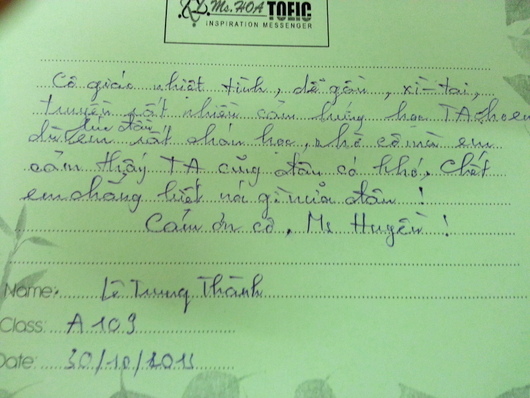 Ms. HOA TOEIC
INSPIRATION MESSENGER
Cô giáo nhiệt tình, dễ gần, xì-tai,
truyền rất nhiều cảm hứng học TA
lúc đầu
dù em rất chán học, nhờ cô mà em
cảm thấy TA cũng đâu có khó. Chắt
em chẳng biết nói gì nữa đâu!
Cám ơn cô, Ms Huyền!
Name: Lê Trung Thành
Class: A103
Date: 30/10/201